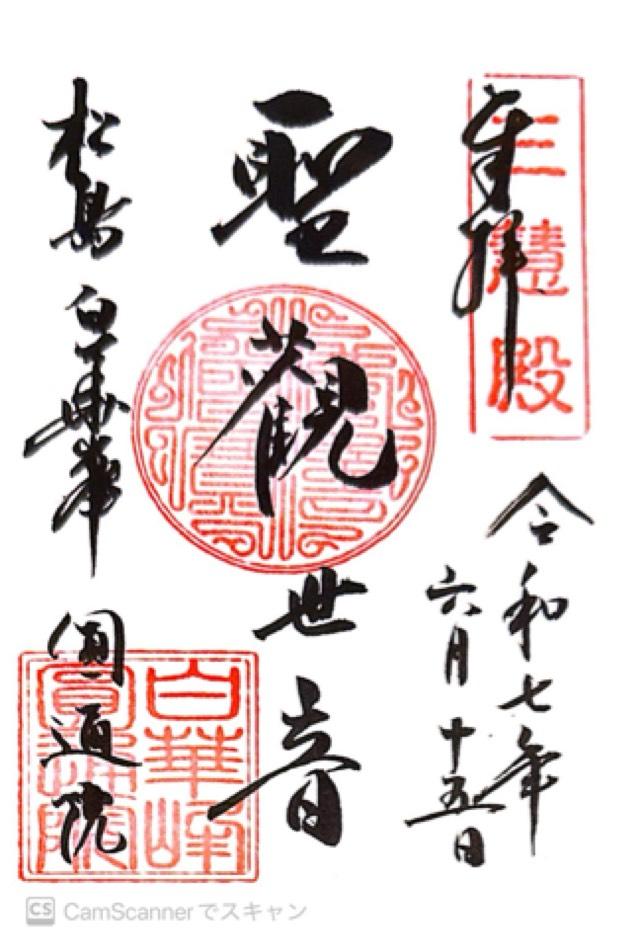 三慧殿
奉拝
令和七年
六月十五日
聖觀世音
松島 白華峯 圓通院
白華峰
圓通院
CS CamScannerでスキャン